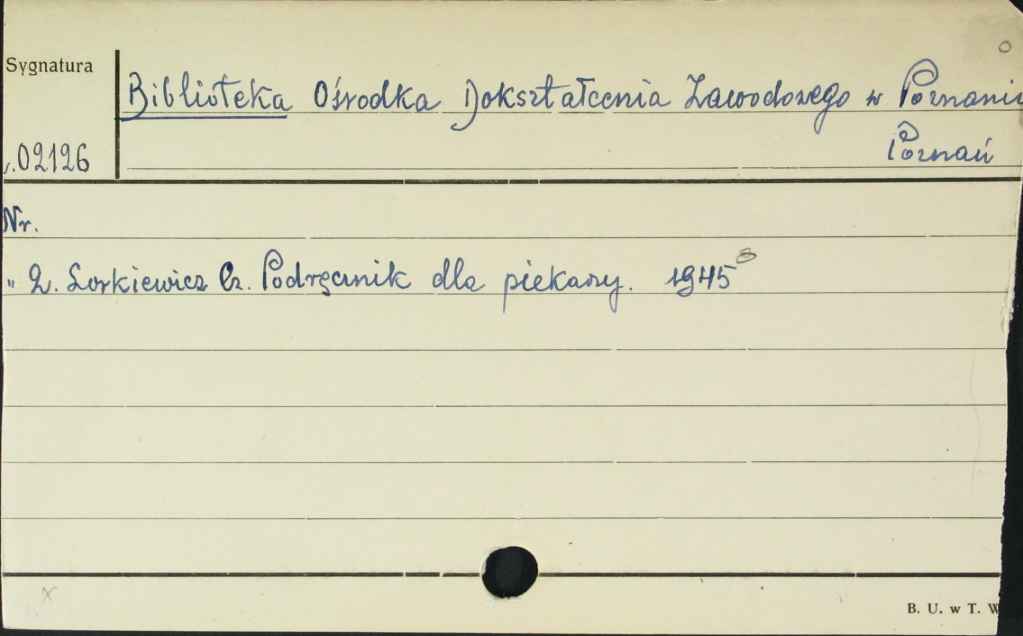 Sygnatura
Biblioteka Ośrodka Dokształcenia Zawodowego w Poznaniu
02126
Poznań
Nr.
" 2. Lorkiewicz Cz. Podręcznik dla piekarzy. 1945
B. U. w T. W